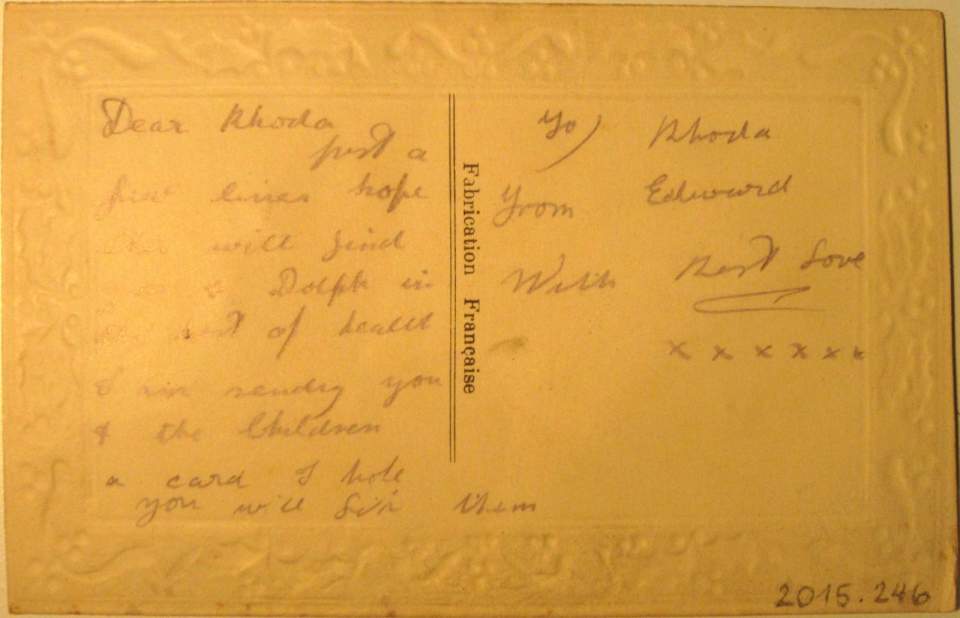 Dear Rhoda
just a
few lines hope
this will find
you & Dolph in
the best of health
I am sendig you
& the Children
a card I hole
you will them
Fabrication Française
To) Rhoda
From Edward
With Best Love
x x x x x x
2015.246